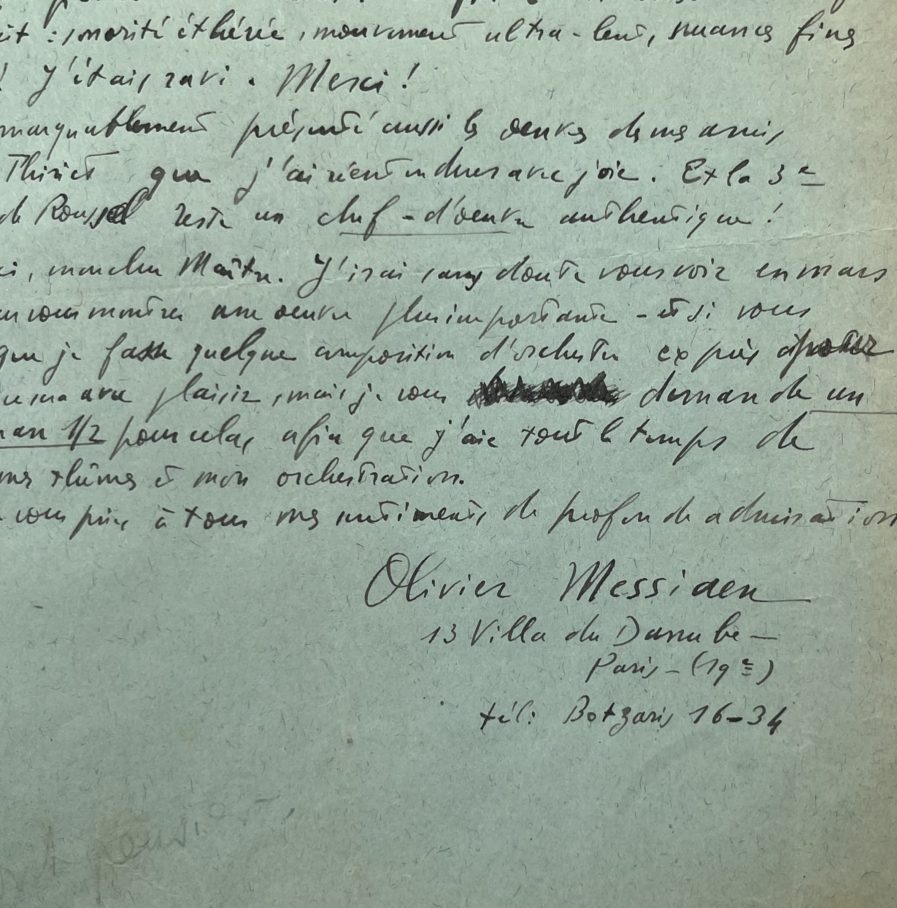 it : sonorité éthérée, mouvement ultra-lent, nuances fines
! J'étais ravi. Merci !
marquablement présenté aussi les œuvres de mes amis,
Thiriet que j'ai réentendues avec joie. Et la 3e
de Roussel reste un chef-d'œuvre authentique !
ci, mon cher Maître. J'irai sans doute vous voir en mars
vous montrer une œuvre plus importante - et si vous
que je fasse quelque composition d'orchestre exprès pour
avec plaisir, mais je vous demande un
an 1/2 pour cela, afin que j'aie tout le temps de
mes rythmes et mon orchestration.
vous prie à tous mes sentiments de profonde admiration
Olivier Messiaen
13 Villa du Danube -
Paris - (19e)
tél : Botzaris 16-34